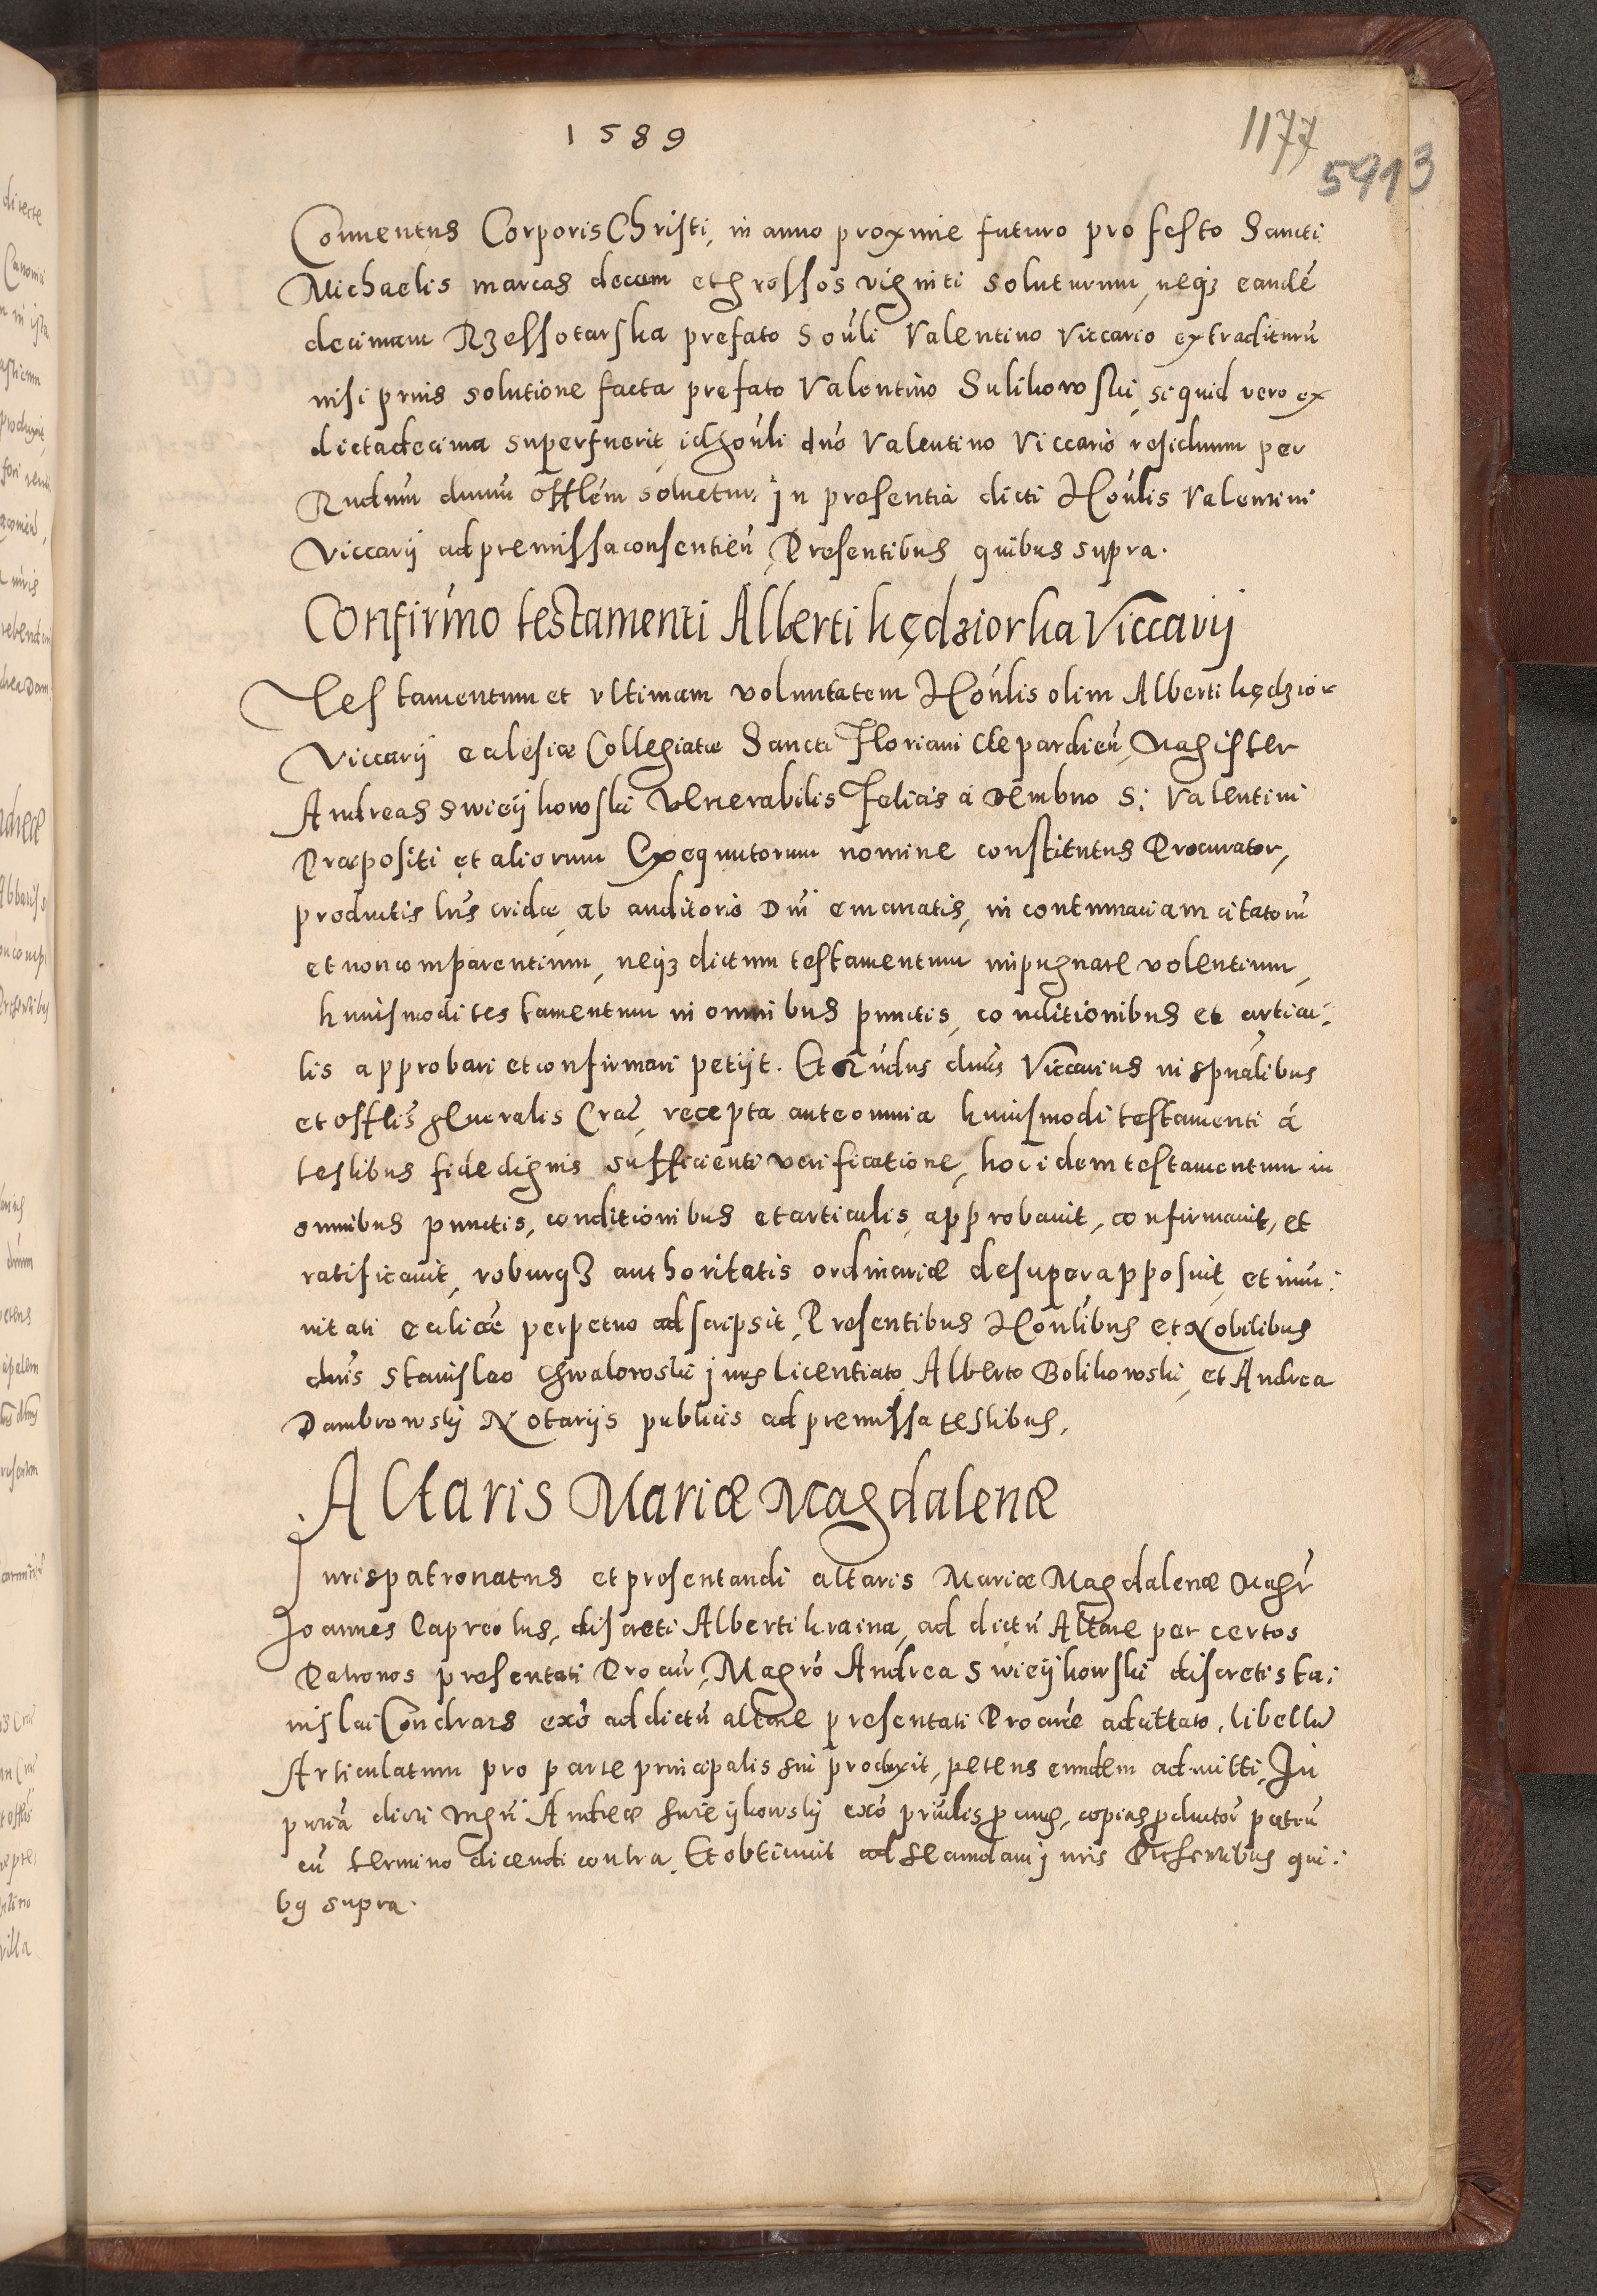 1589
1177
5913
Conuentus Corporis Christi, in anno proxime futuro pro festo Sancti
Michaelis marcas decem et grossos viginti soluturum, neqz eandē
decimam Rzessotarska prefato Honli Valentino Viccario extraditurū
nisi prius solutione facta prefato Valentino Sulikowski, si quid vero ex
dicta decima superfuerit, id honli dno Valentino Viccario residuum per
Rndum dnum Offlem soluetur. In presentia dicti Honlis Valentini
Viccarij ad premissa consentien. Presentibus quibus supra.
Confirmo testamenti Alberti kędziorka Viccarij
Testamentum et vltimam voluntatem Honlis olim Alberti kędzior
Viccarij ecclesiæ Collegiatæ Sancti Floriani Clepardien, Magister
Andreas Swieijkowski Venerabilis Felicis á Dembno S: Valentini
Præpositi et aliorum Exequutorum nomine constitutus Procurator,
productis lris cridæ, ab auditorio Dni emanatis, in contumaciam citatorū
et non comparentium, neqz dictum testamentum impugnare volentium,
huiusmodi testamentum in omnibus punctis, conditionibus et articu:
lis approbari et confirmari petijt. Et Rndus dnus Viccarius in spnalibus
et Offlis generalis Crac, recepta ante omnia huiusmodi testamenti á
testibus fide dignis sufficienti verificatione, hoc idem testamentum in
omnibus punctis, conditionibus et articulis approbauit, confirmauit, et
ratificauit, roburqz authoritatis ordinariæ desuper apposuit, et immu:
nitati eccliæ perpetuo adscripsit, Presentibus Honlibus et Nobilibus
dnis Stanislao Chwalowski juris licentiato, Alberto Bolikowski, et Andrea
Dambrowskij Notarijs publicis ad premissa testibus.
Altaris Mariæ Magdalenæ
Jurispatronatus et presentandi altaris Mariæ Magdalenæ Magr
Joannes Capreolus, discreti Alberti kraina, ad dictū Altare per certos
Patronos presentati Procur, Magro Andrea Swieijkowski discreti Sta:
nislai Condrars exo ad dictū altare presentati Procure adcittato, libellū
Articulatum pro parte principalis sui produxit, petens eundem admitti, In
pntia dicti Mgri Andreæ Swieijkowskij exo priulis copias productor petiū
cū termino dicendi contra. Et obtinuit ad secundam juris Presentibus qui:
bq supra.